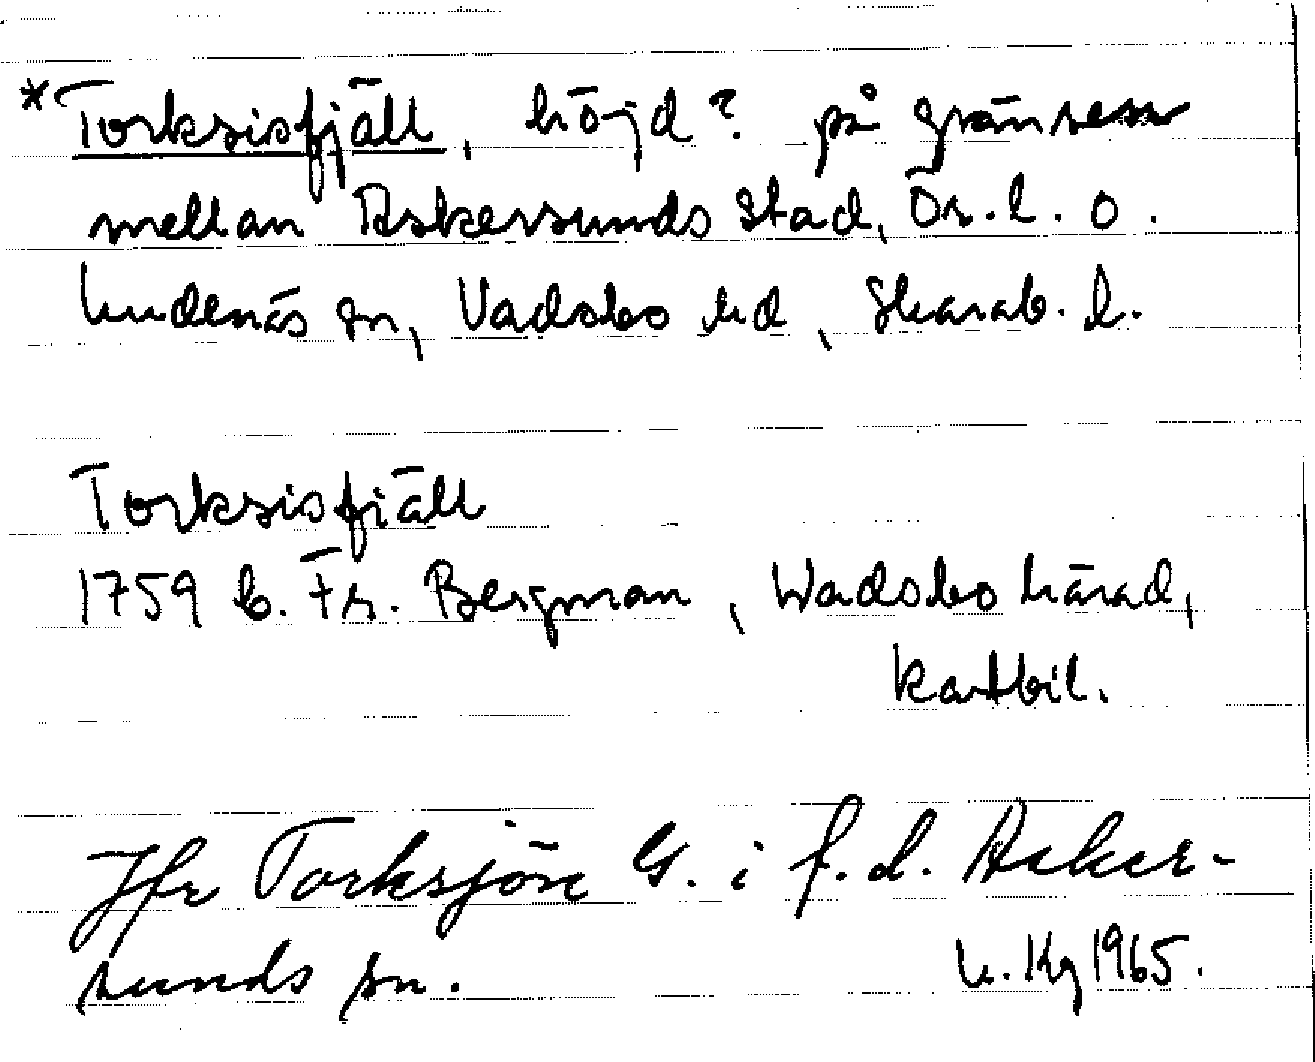 *Torksisfjäll, höjd? på gränsen
mellan Askersunds stad, Ör. l. o.
Undenäs sn, Vadsbo hd, Skarab. l.
Torksisfjäll
1759 C. Fr. Bergman, Wadsbo härad,
kartbil.
Jfr Torksjön G. i f.d. Asker-
sunds sn.
1965.